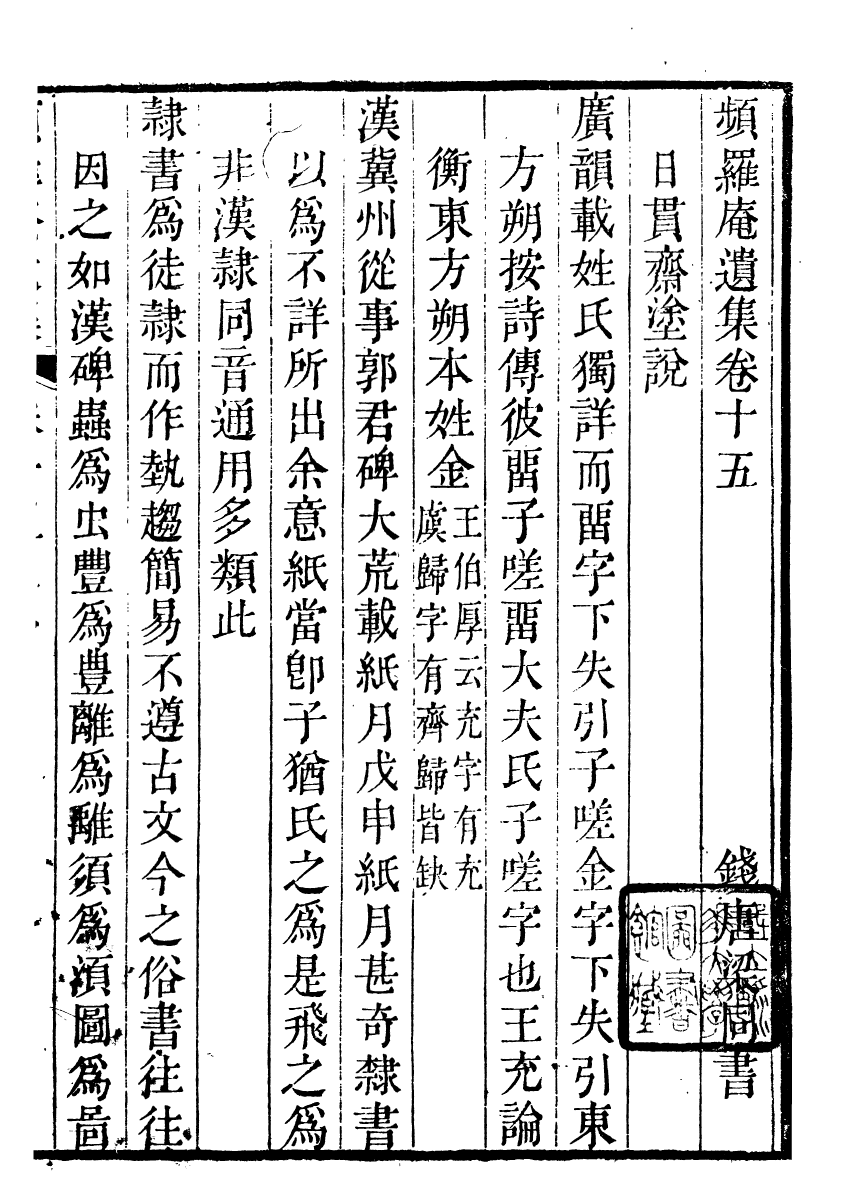 頻羅庵遺集卷十五
錢唐梁同書
日貫齋塗說
廣韻載姓氏獨詳而畱字下失引子嗟金字下失引東
方朔按詩傳彼畱子嗟畱大夫氏子嗟字也王充論
衡東方朔本姓金王伯厚云充字有充
虞歸字有齊歸皆缺
漢冀州從事郭君碑大荒載紙月戊申紙月甚奇隸書
以爲不詳所出余意紙當卽子猶氏之爲是飛之爲
非漢隸同音通用多類此
隸書爲徒隸而作埶趨簡易不遵古文今之俗書往往
因之如漢碑蟲爲虫豐爲豊離爲離須爲湏圖爲啚